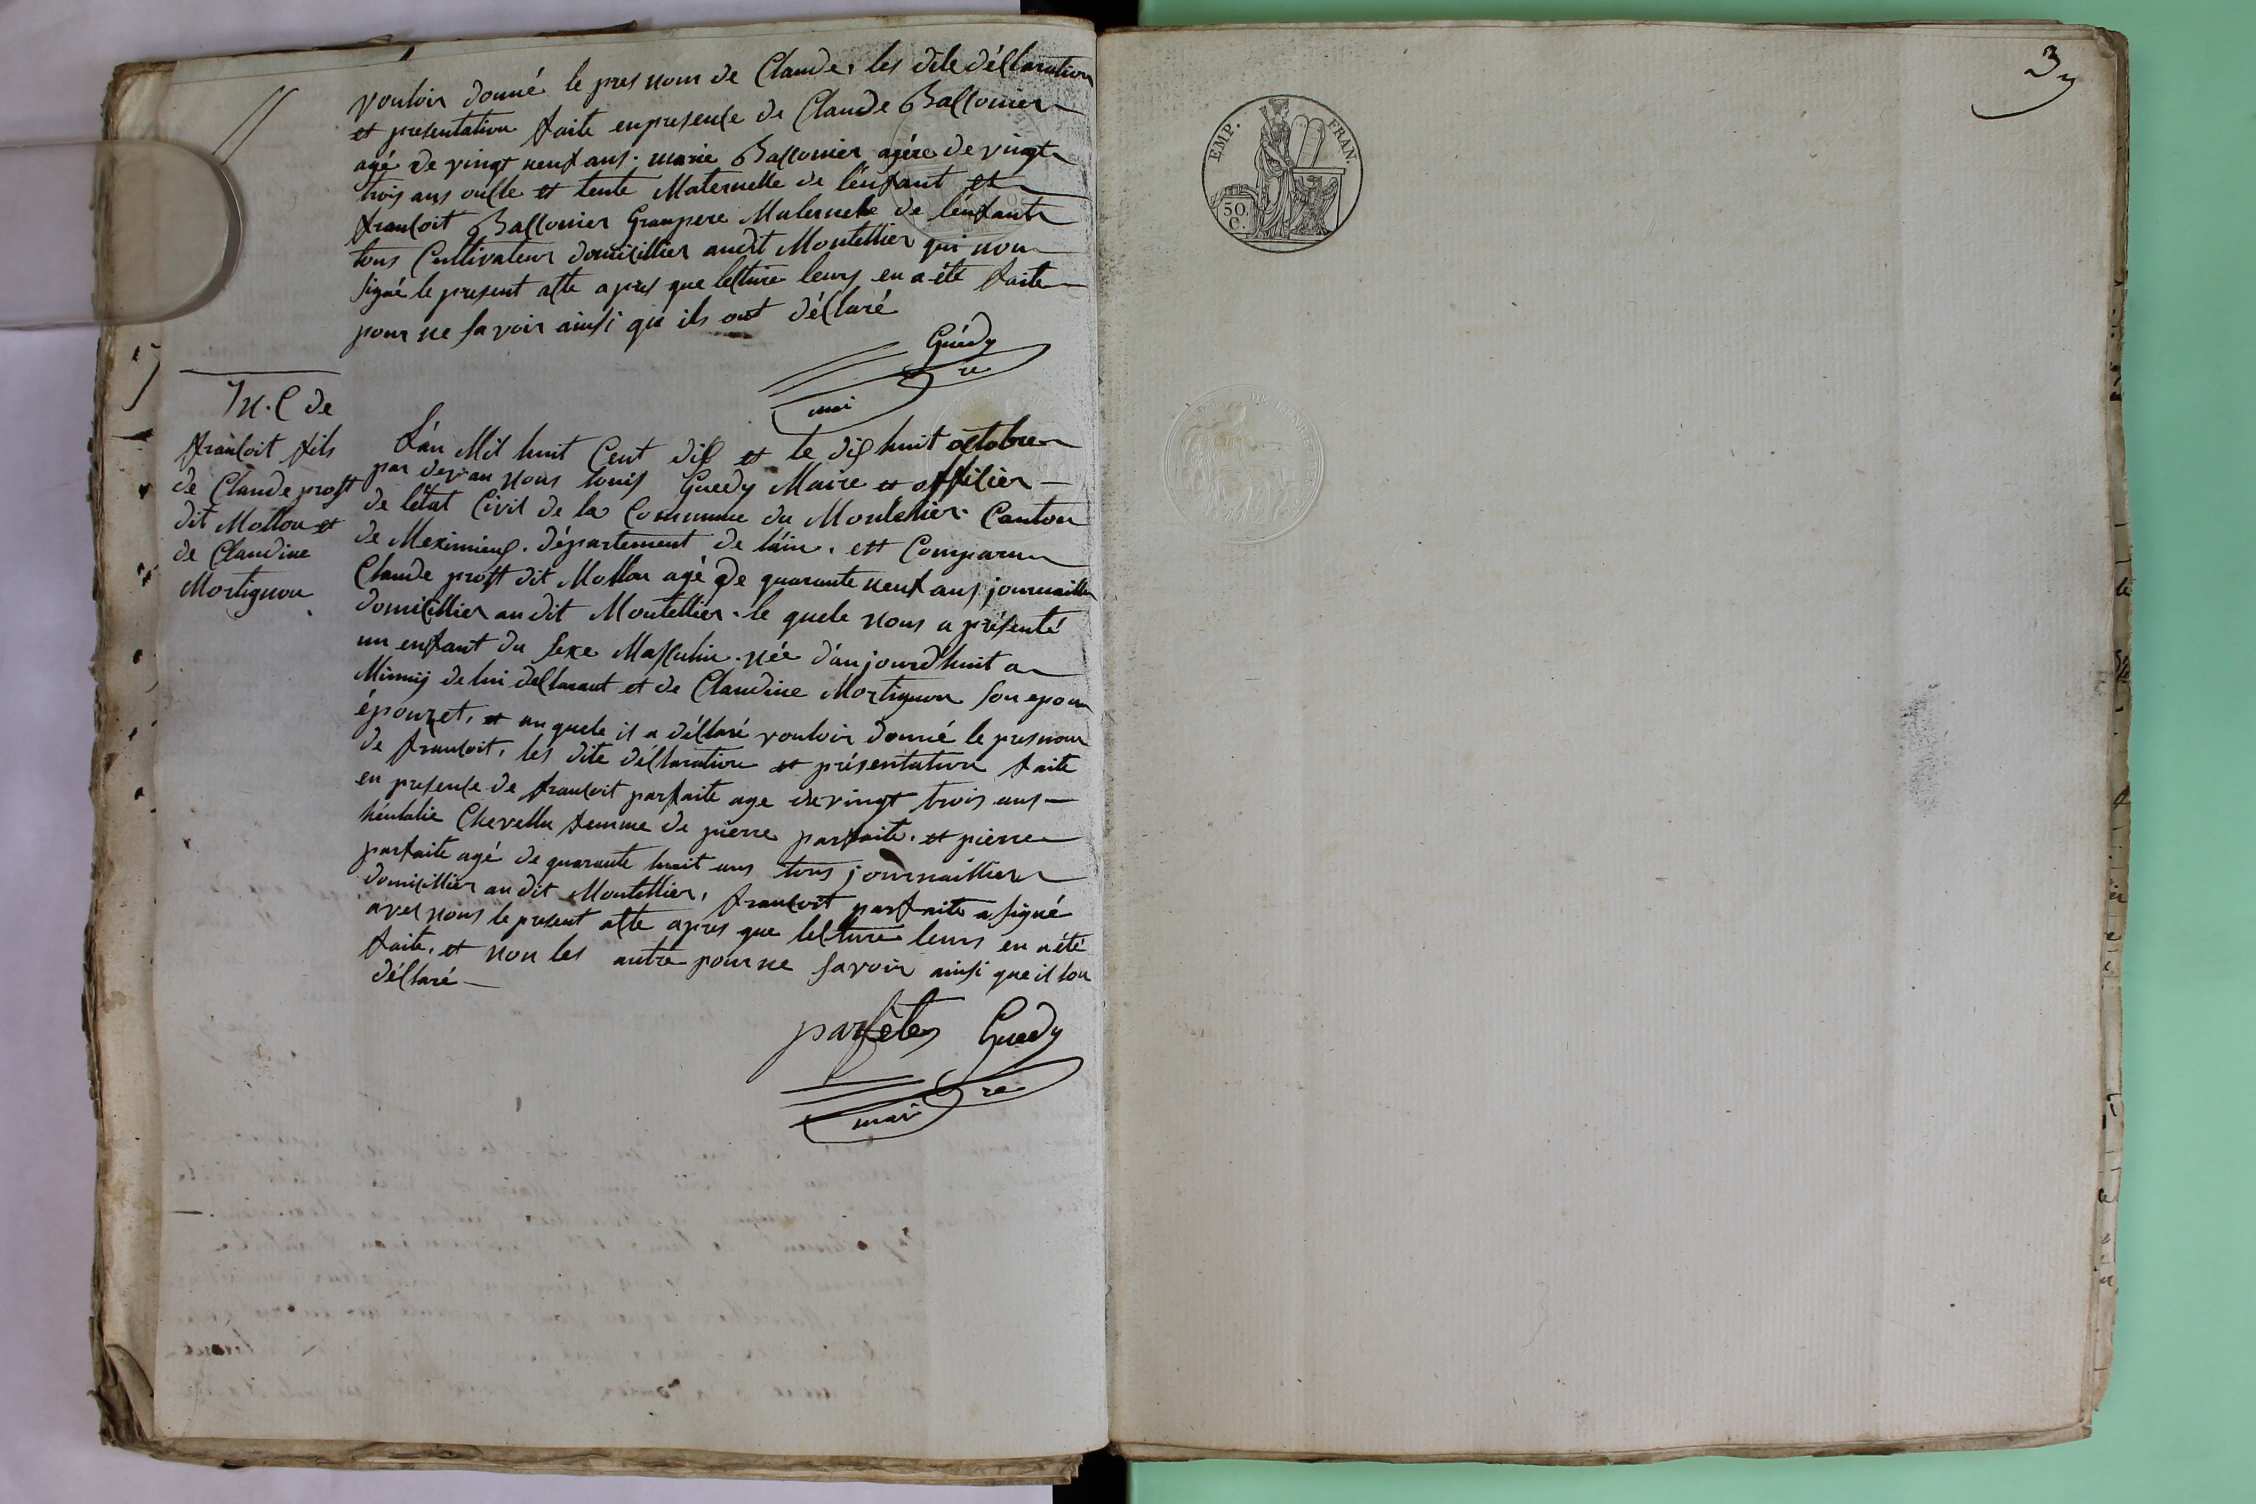 vouloir donné le pres nom de Claude, les dite déClaration
et presentation faite en presence de Claude Balsonier
agé de vingt neuf ans. marie Balsonier agére de vingt
trois ans oncle et tente Maternelle de l'enfant et
françoit Balsonier Granpere Maternele de l'enfant
tous Cultivateur domicillier audit Montellier qui non
signé le present acte apres que lecture leurs en a été faite
pour ne savoir ainsi qu ils ont déClaré
Guédy
mai re
N.C de
françoit fils
de Claude prost
dit Mollon et
de Claudine
Mortignon
L'an Mil huit Cent dix et le dix huit octobre
par devan nous louis Guedy Maire et officier
de l'état Civil de la Commune du Montellier. Canton
de Meximieux. département de l'ain. est Comparu
Claude prost dit Mollon agé de quarante neuf ans journaillier
domicillier au dit Montellier. le quele nous a présenté
un enfant du sexe Masculin. née d'aujourdhuit a
Minuis de lui declarant et de Claudine Mortignon son epou
épouzet, et au quele il a déClaré vouloir donné le presnom
de françoit, les dite déClaration et présentation faite
en presence de françoit parfaite age de vingt trois ans
Chevellu femme de pierre parfaite. et pierre
parfaite agé de quarante huit ans tous journaillier
domicillier au dit Montellier, françoit parfaite a signé
avec nous le present acte apres que lecture leurs en a été
faite, et non les autre pour ne savoir ainsi que il lon
déClaré
parfète Guédy
mai re
3
EMP. FRAN.
50.
C.